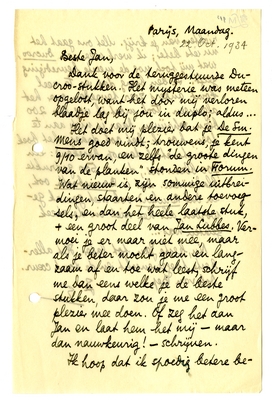 Parijs, Maandag.
22 Oct. 1934
Beste Jan,
Dank voor de teruggestuurde Du-
croo-stukken. Het mysterie was meteen
opgelost, want het door mij verloren
blaadje lag bij jou in duplo; aldus...
Het doet mij plezier dat je De Sm-
Mens goed vindt; trouwens, je kent
9/10 ervan, en zelfs de groote dingen
van de planken stonden in Forum.
Wat nieuw is, zijn sommige uitbrei-
dingen, staarten en andere toevoeg-
sels, en dan het heele laatste stuk,
+ een groot deel van Jan Lubbes. Ver-
moei je er maar niet mee, maar
als je beter mocht gaan en lang-
zaam af en toe wat leest, schrijf
me dan eens welke je de beste
stukken, daar zou je me een groot
plezier mee doen. Of zeg het dan
Jan en laat hem het mij — maar
dan nauwkeurig! — schrijven.
Ik hoop dat ik spoedig betere be-